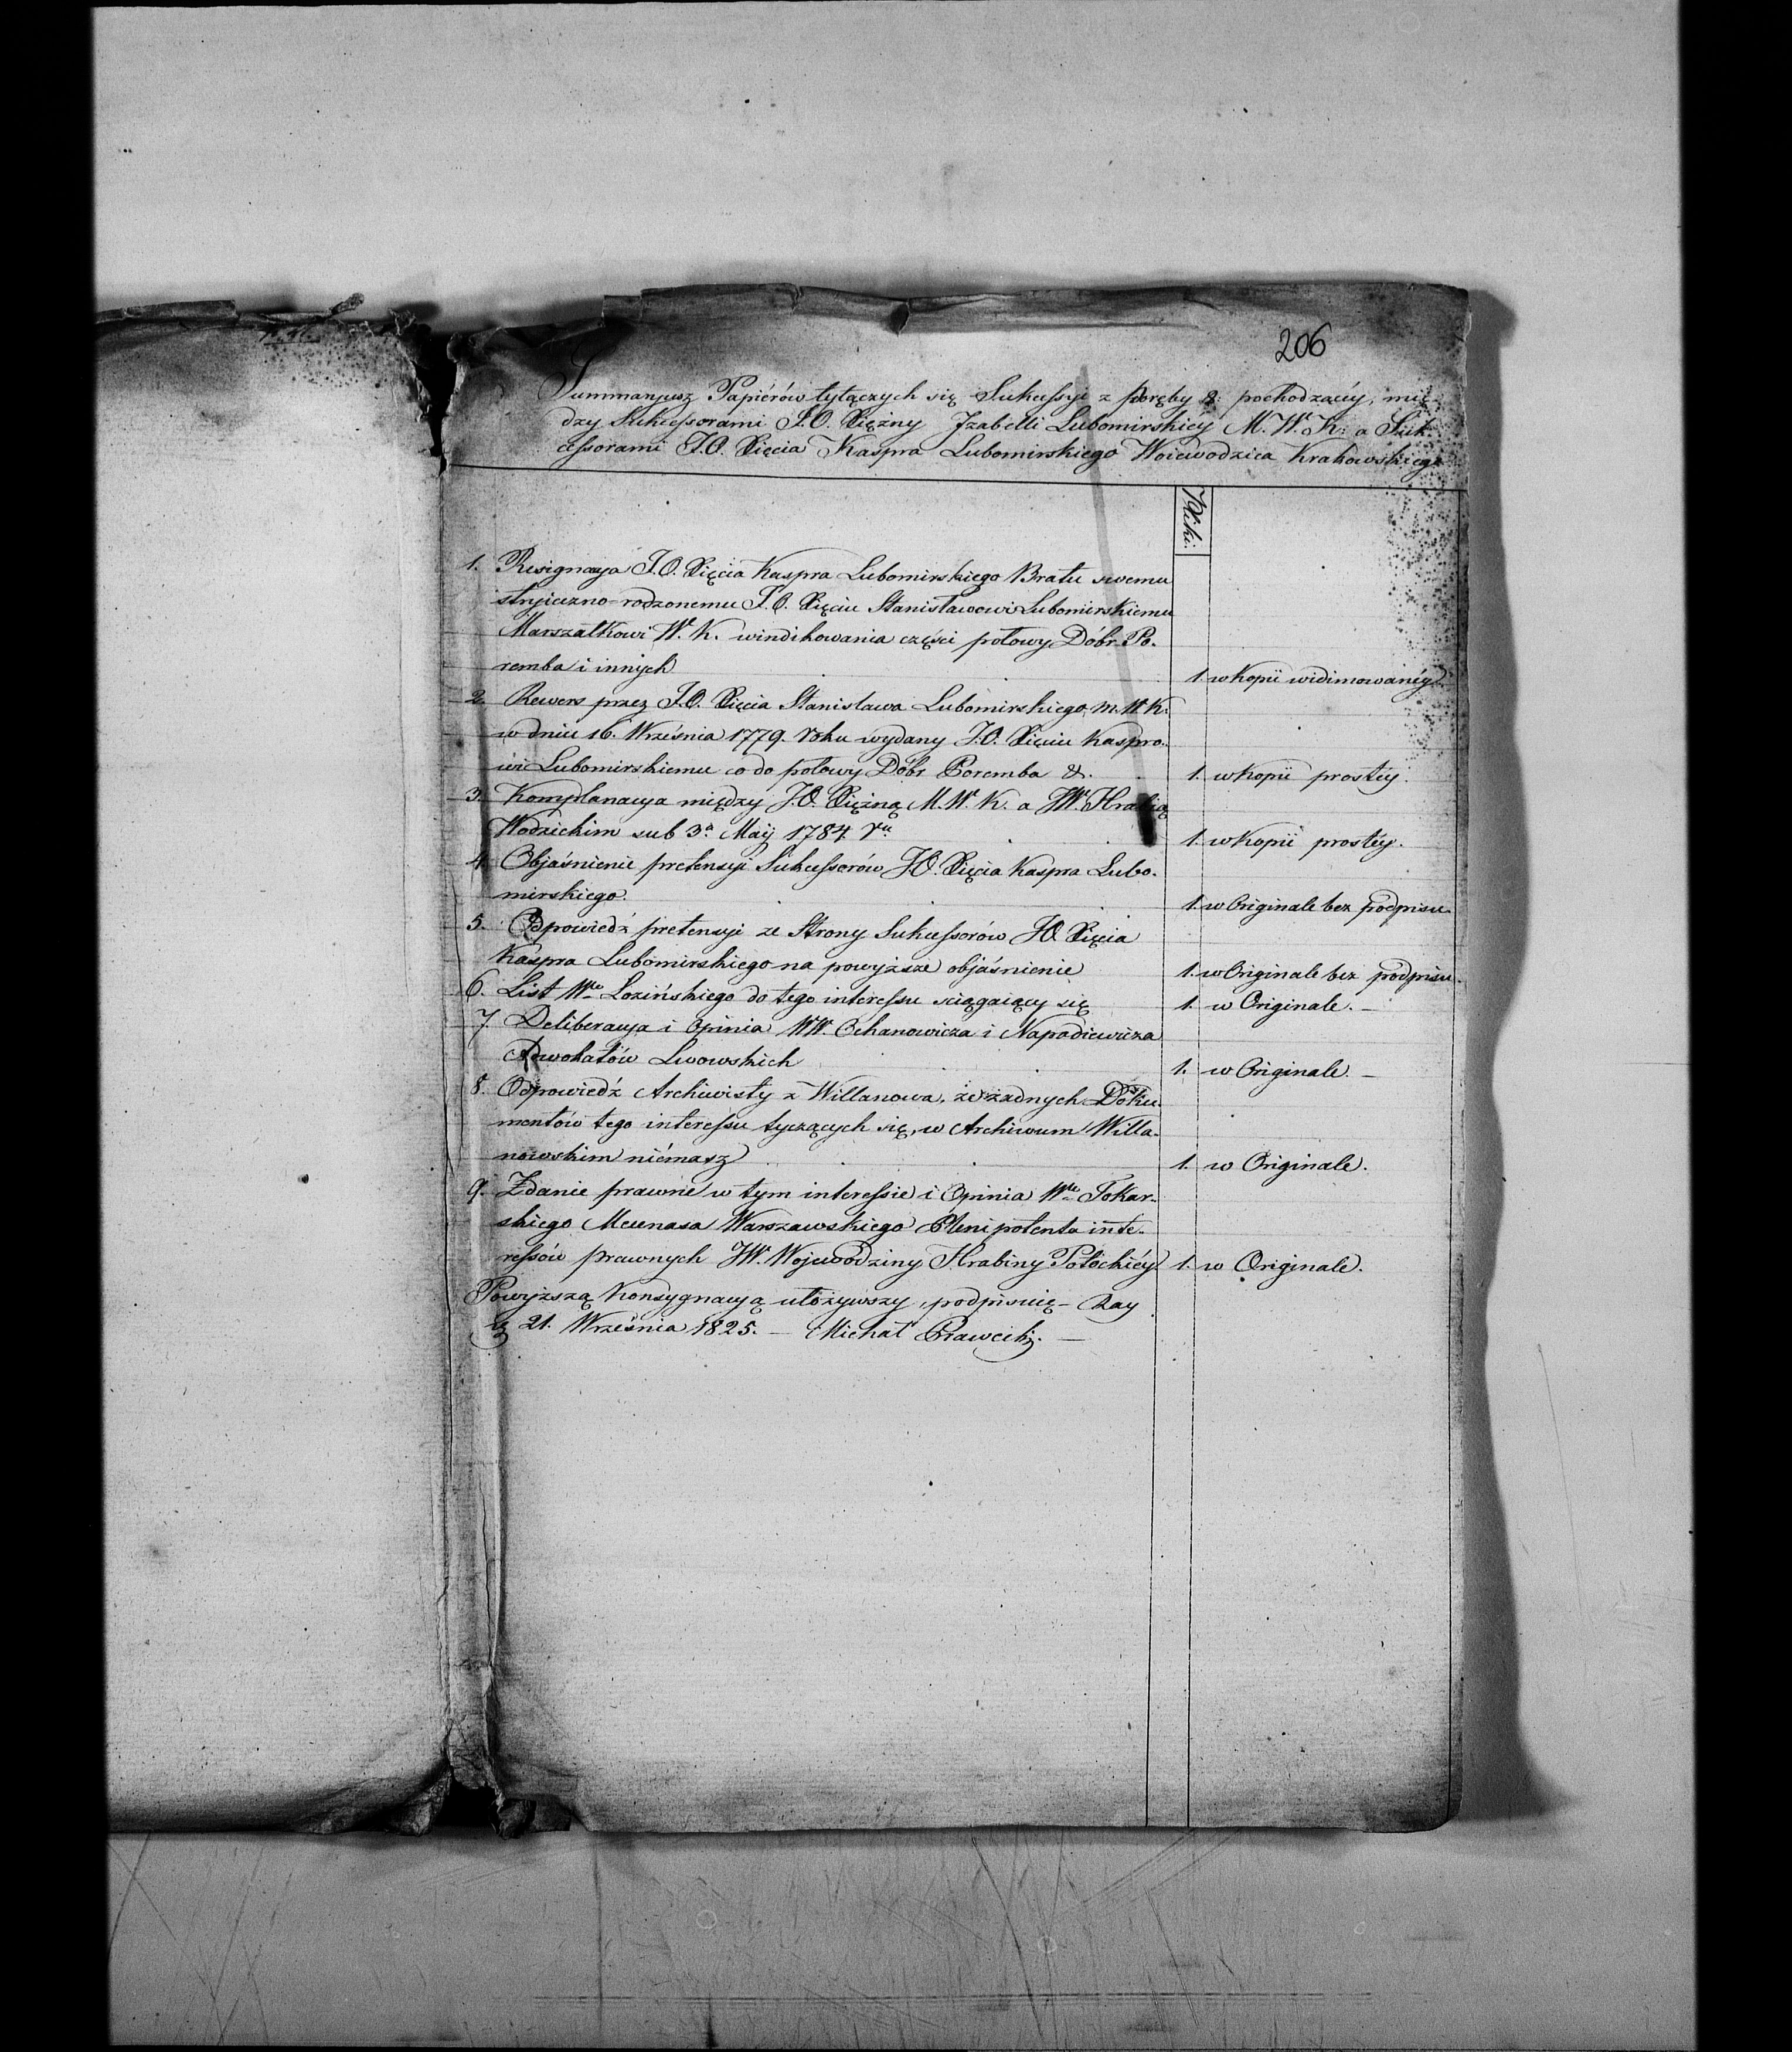 206
Summaryusz Papiérów tyłączych się Sukcessyi z Poręby &: pochodzącéy, mię-
dzy Sukcessorami J.O. Xiężny Jzabelli Lubomirskiéy M. W. K: a Suk-
cessorami J.O. Xięcia Kaspra Lubomirskiego Woiewodzica Krakowskiego
Sztuki.
1. Resignacya J.O. Xięcia Kaspra Lubomirskiego Bratu swemu
stryieczno-rodzonemu J.O. Xięciu Stanisławowi Lubomirskiemu
Marszałkowi W. K. windikowania części połowy Dóbr Po-
remba i innych 1. w Kopii widimowanéy
2. Rewers przez J.O. Xięcia Stanisława Lubomirskiego M.W.K.
w dniu 16. Września 1779. roku wydany J.O. Xięciu Kaspro-
wi Lubomirskiemu co do połowy Dóbr Poremba &. 1. w Kopii prostéy.
3. Komplanacya między J.O. Xiężną M. W. K. a JW. Hrabią
Wodzickim sub 3ª Maij 1784. ru 1. w Kopii prostéy.
4. Objaśnienie pretensyi Sukcessorów J.O. Xięcia Kaspra Lubo-
mirskiego. 1. w Originale bez podpisu.
5. Odpowiedź pretensyi ze Strony Sukcessorów J.O. Xięcia
Kaspra Lubomirskiego na powyższe objaśnienie 1. w Originale bez podpisu.
6. List Wgo Lozińskiego do tego interessu ściągaiący się 1. w Originale. –
7. Deliberacya i Opinia WW. Ochanowicza i Napadiewicza
Adwokatów Lwowskich 1. w Originale. –
8. Odpowiedź Archiwisty z Willanowa, że żadnych Doku-
mentów tego interessu tyczących się, w Archiwum Willa-
nowskim niémasz 1. w Originale.
9. Zdanie prawne w tym interessie i Opinia Wgo Tokar-
skiego Mecenasa Warszawskiego Plenipotenta inte-
ressów prawnych JW. Wojewodziny Hrabiny Potockiéy 1. w Originale.
Powyższą Konsygnacyą ułożywszy, podpisuię –
21. Września 1825. – Michał